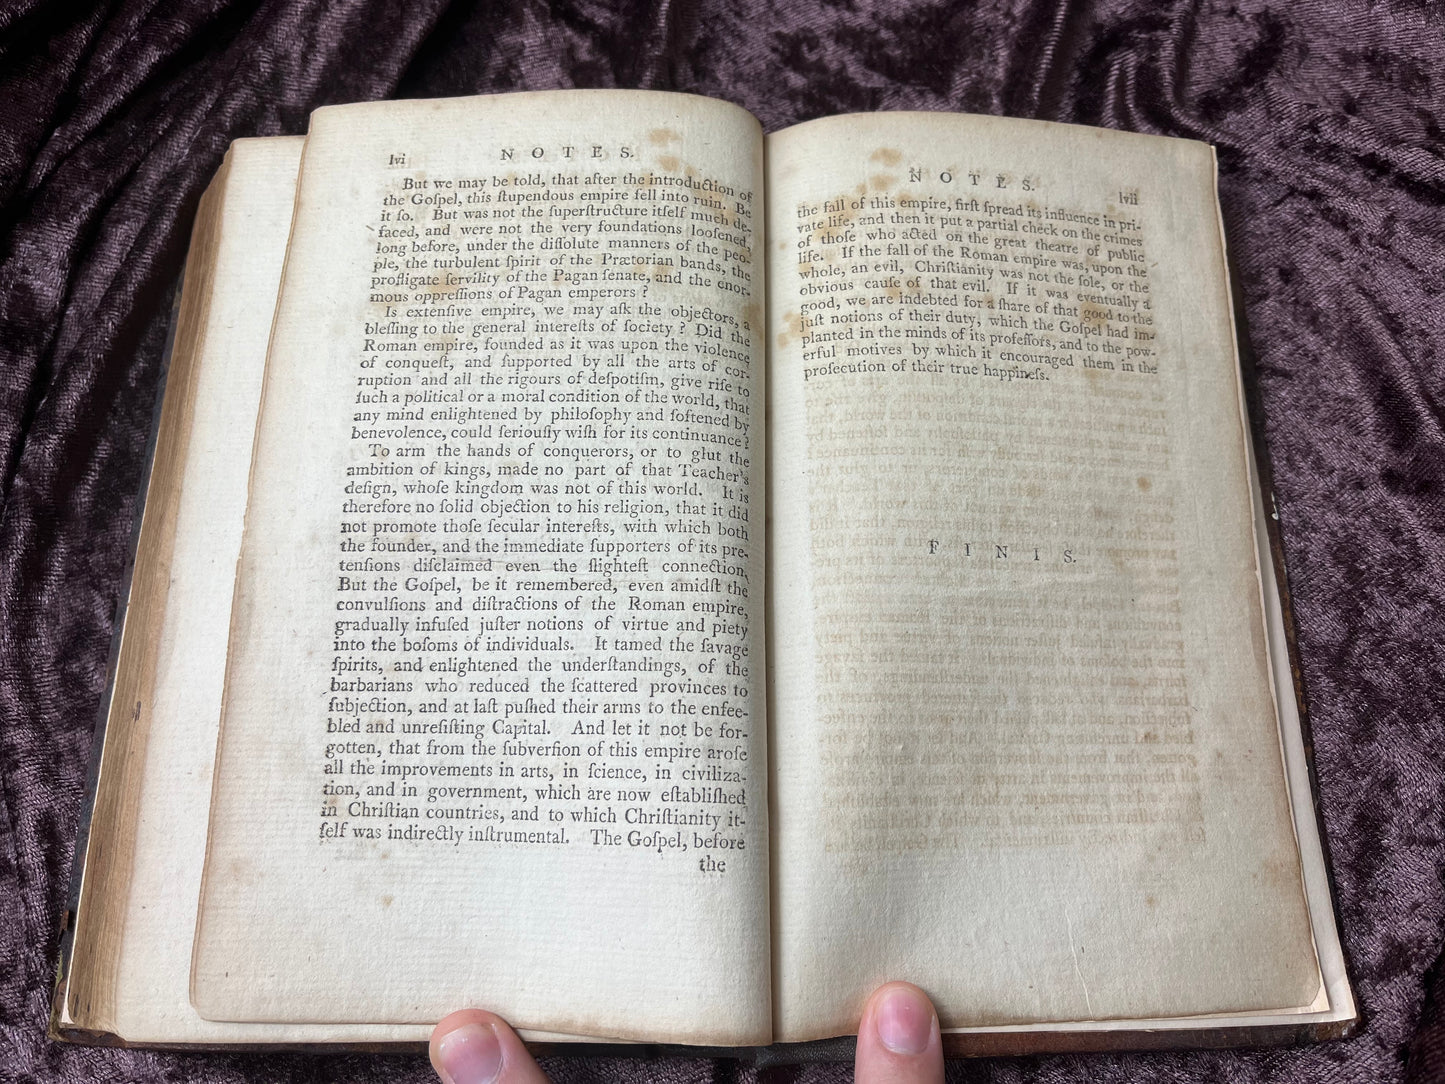 lvi
N O T E S.
But we may be told, that after the introduction of
the Goſpel, this ſtupendous empire fell into ruin. Be
it ſo. But was not the ſuperſtructure itſelf much de-
faced, and were not the very foundations looſened,
long before, under the diſſolute manners of the peo-
ple, the turbulent ſpirit of the Prætorian bands, the
profligate ſervility of the Pagan ſenate, and the enor-
mous oppreſſions of Pagan emperors ?
Is extenſive empire, we may aſk the objectors, a
bleſſing to the general intereſts of ſociety ? Did the
Roman empire, founded as it was upon the violence
of conqueſt, and ſupported by all the arts of cor-
ruption and all the rigours of deſpotiſm, give riſe to
ſuch a political or a moral condition of the world, that
any mind enlightened by philoſophy and ſoftened by
benevolence, could ſeriouſly wiſh for its continuance ?
To arm the hands of conquerors, or to glut the
ambition of kings, made no part of that Teacher's
deſign, whoſe kingdom was not of this world. It is
therefore no ſolid objection to his religion, that it did
not promote thoſe ſecular intereſts, with which both
the founder, and the immediate ſupporters of its pre-
tenſions diſclaimed even the ſlighteſt connection.
But the Goſpel, be it remembered, even amidſt the
convulſions and diſtractions of the Roman empire,
gradually infuſed juſter notions of virtue and piety
into the boſoms of individuals. It tamed the ſavage
ſpirits, and enlightened the underſtandings, of the
barbarians who reduced the ſcattered provinces to
ſubjection, and at laſt puſhed their arms to the enfee-
bled and unreſiſting Capital. And let it not be for-
gotten, that from the ſubverſion of this empire aroſe
all the improvements in arts, in ſcience, in civiliza-
tion, and in government, which are now eſtabliſhed
in Chriſtian countries, and to which Chriſtianity it-
ſelf was indirectly inſtrumental. The Goſpel, before
the
N O T E S.
lvii
the fall of this empire, firſt ſpread its influence in pri-
vate life, and then it put a partial check on the crimes
of thoſe who acted on the great theatre of public
life. If the fall of the Roman empire was, upon the
whole, an evil, Chriſtianity was not the ſole, or the
obvious cauſe of that evil. If it was eventually a
good, we are indebted for a ſhare of that good to the
juſt notions of their duty, which the Goſpel had im-
planted in the minds of its profeſſors, and to the pow-
erful motives by which it encouraged them in the
proſecution of their true happineſs.
F I N I S.